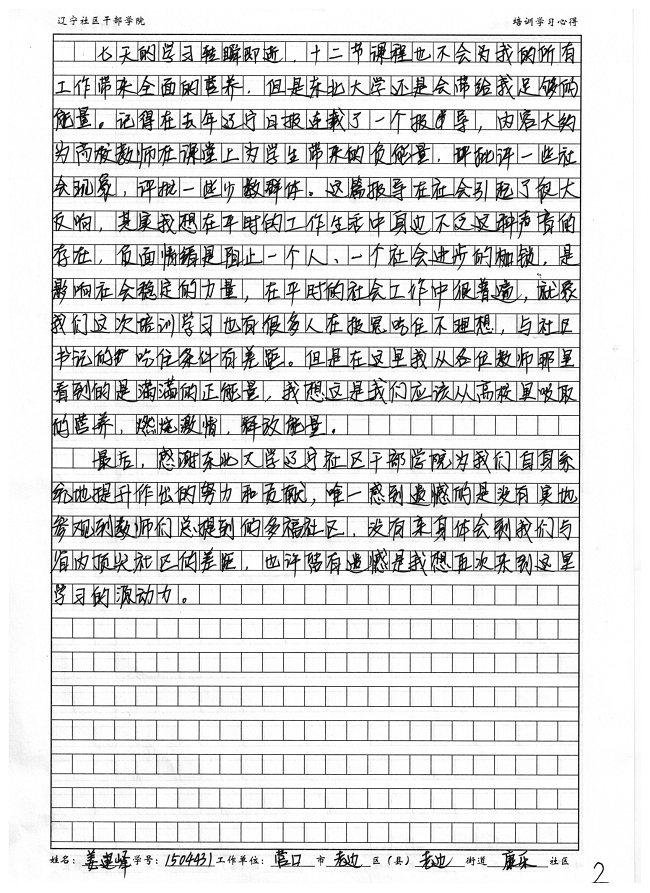 辽宁社区干部学院 培训学习心得
七天的学习转瞬即逝，十二节课程也不会为我的所有
工作带来全面的营养，但是东北大学还是会带给我足够的
能量。记得在去年辽宁日报连载了一个报导，内容大约
为高校教师在课堂上为学生带来的负能量，批评一些社
会现象，评批一些少数群体。这篇报导在社会引起了很大
反响，其实我想在平时的工作生活中身边不乏这种声音的
存在，负面情绪是阻止一个人、一个社会进步的枷锁，是
影响社会稳定的力量，在平时的社会工作中很普遍，就象
我们这次培训学习也有很多人在报怨吃住不理想，与社区
书记的吃住条件有差距。但是在这里我从各位教师那里
看到的是满满的正能量，我想这是我们应该从高校里吸取
的营养，燃烧激情，释放能量。
最后，感谢东北大学辽宁社区干部学院为我们自身系
统地提升作出的努力和贡献，唯一感到遗憾的是没有实地
参观到教师们总提到的多福社区，没有亲身体会到我们与
省内顶尖社区的差距，也许留有遗憾是我想再次来到这里
学习的源动力。
姓名：姜 学号：1504431 工作单位：营口 市 老边 区（县）老边 街道 康乐 社区
2